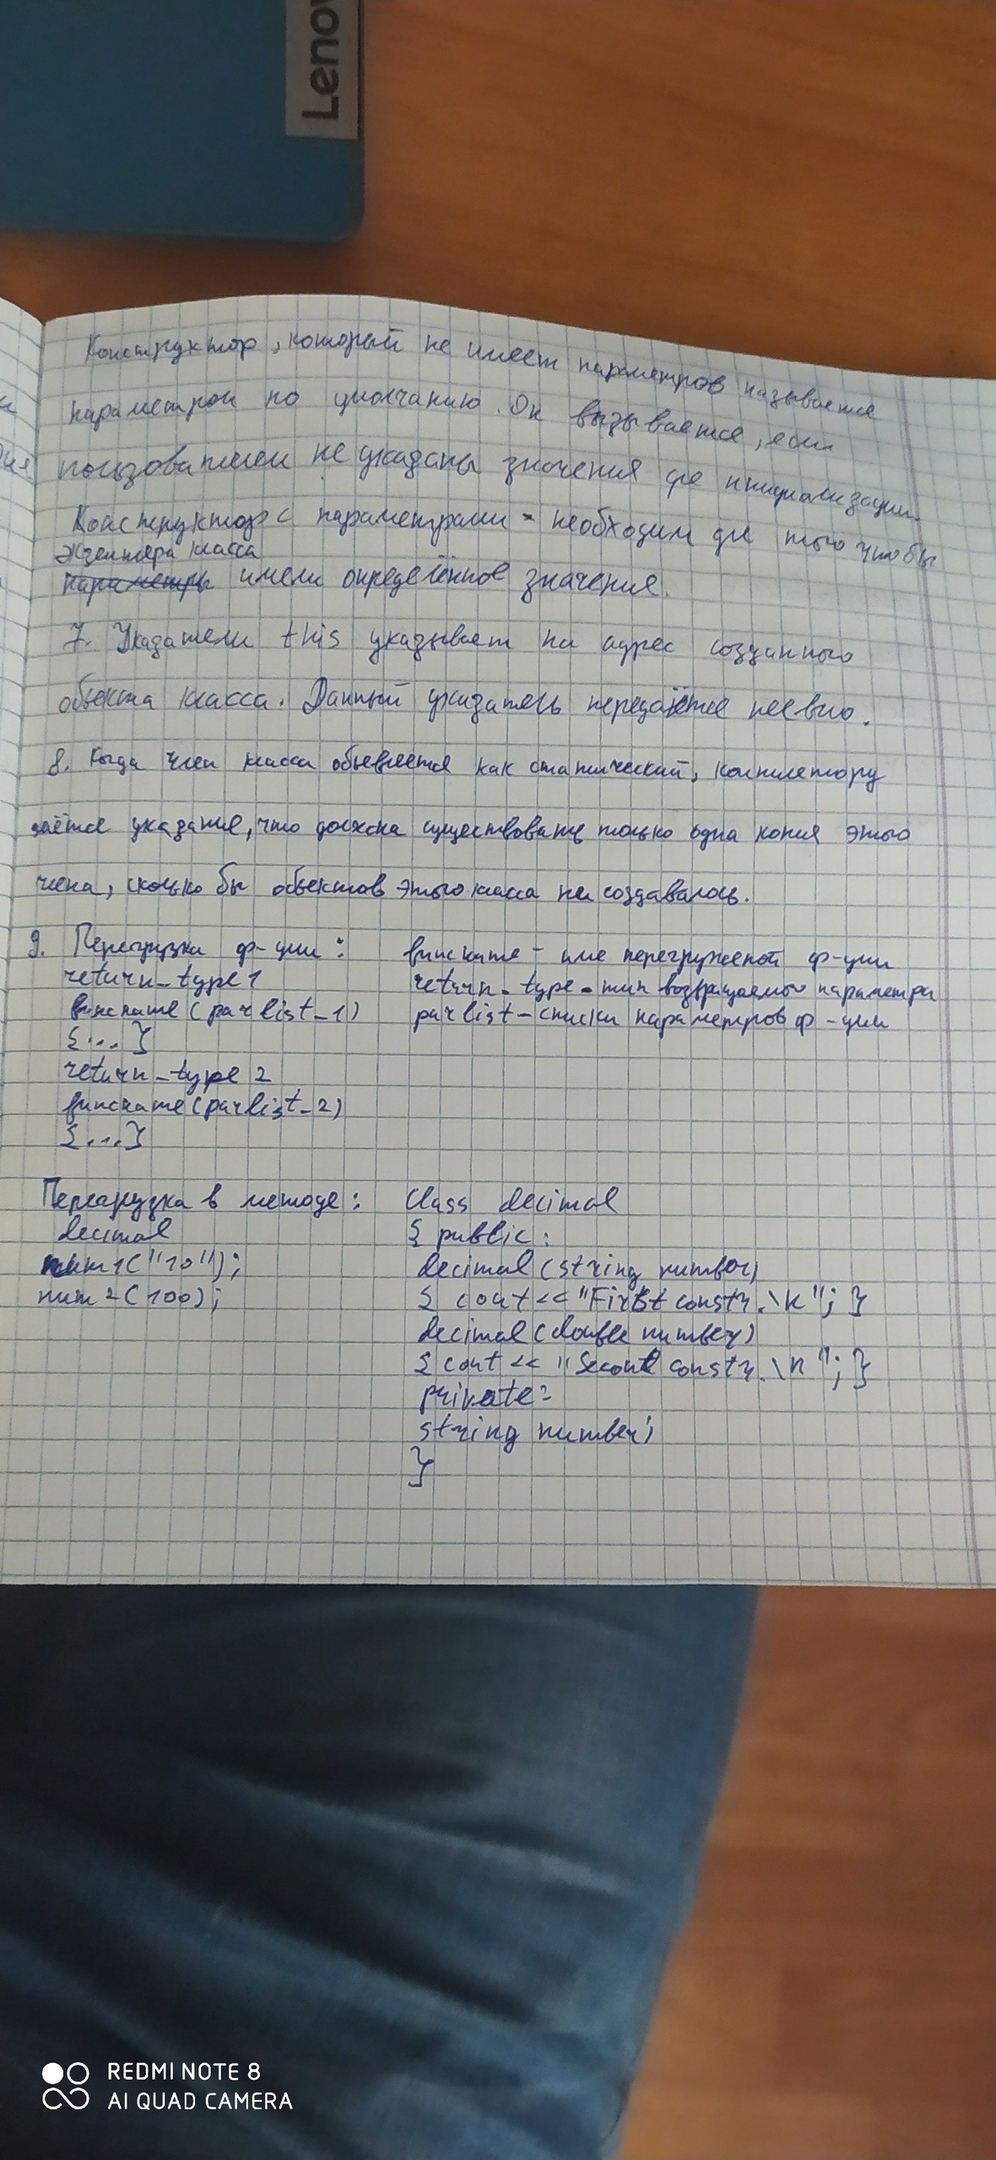 Lenov
Конструктор, который не имеет параметров называется
параметром по умолчанию. Он вызывается, если
пользователем не указаны значения для инициализации.
Конструктор с параметрами - необходим для того чтобы
экземпляра класса
параметры имели определённое значение.
7. Указатели this указывает на адрес созданного
объекта класса. Данный указатель передаётся неявно.
8. Когда член класса объявляется как статический, компилятору
даётся указание, что должна существовать только одна копия этого
члена, сколько бы объектов этого класса не создавалось.
9. Перегрузка ф-ции:
return_type1
funcname (parlist_1)
{...}
return_type2
funcname (parlist_2)
{...}
funcname - имя перегруженой ф-ции
return_type - тип возвращаемого параметра
parlist - списки параметров ф-ции
Перегрузка в методе:
decimal
num1("10");
num2(100);
Class decimal
{ public:
decimal (string number)
{ cout << "First constr.\n"; }
decimal (double number)
{ cout << "Second constr.\n"; }
private:
string number;
}
REDMI NOTE 8
AI QUAD CAMERA